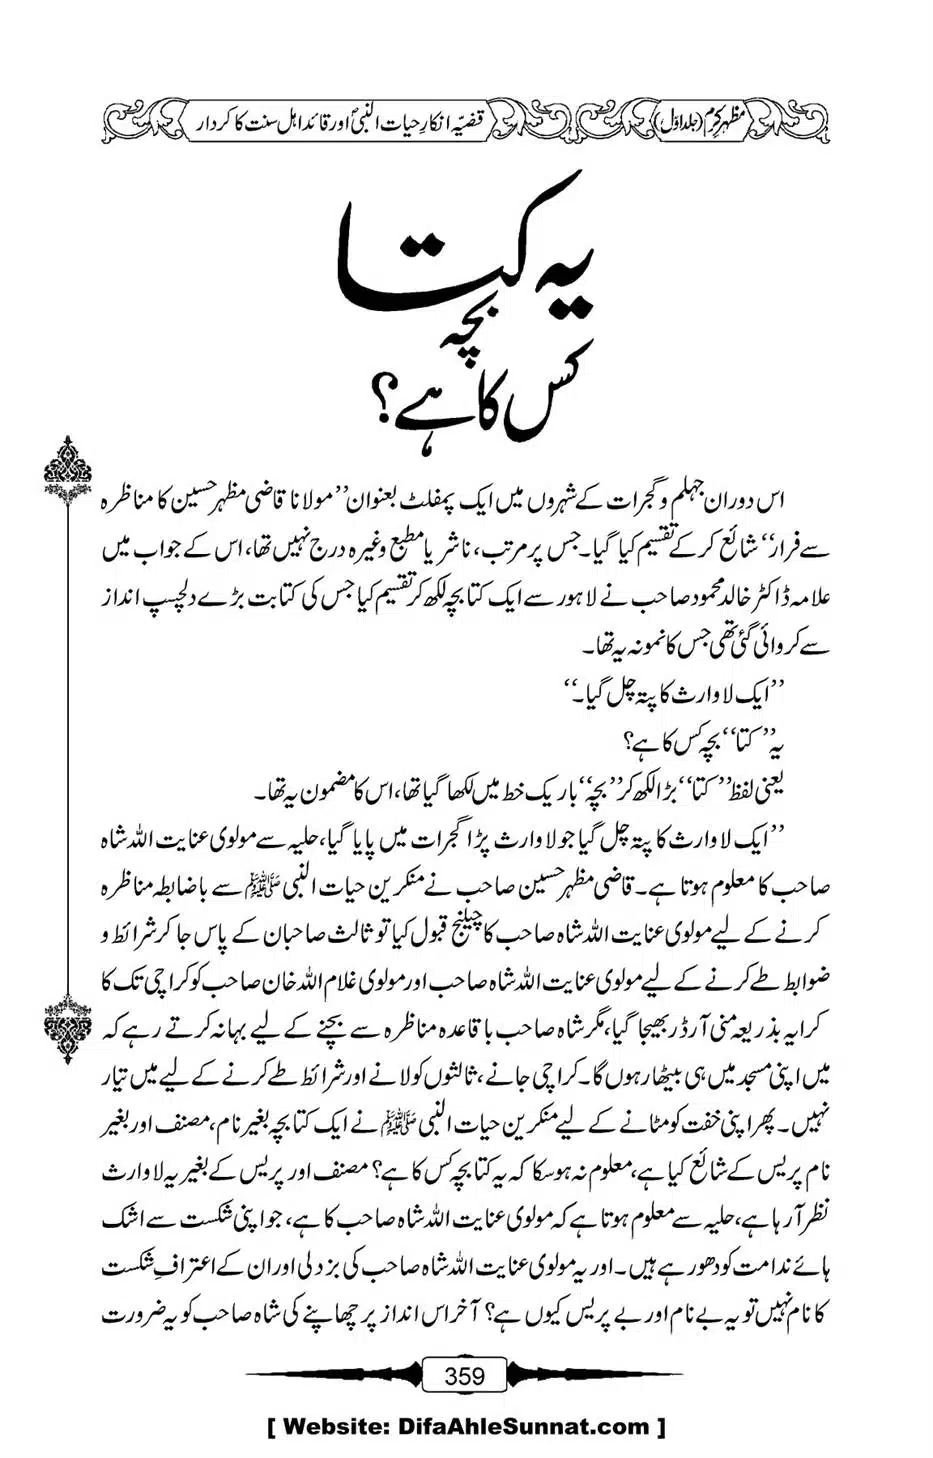 مظہرِ کرم (جلد اوّل)
قضیّہ انکارِ حیات النبیؐ اور قائد اہل سنت کا کردار
یہ کتا
بچہ
کس کا ہے؟
اس دوران جہلم و گجرات کے شہروں میں ایک پمفلٹ بعنوان ’’مولانا قاضی مظہر حسین کا مناظرہ
سے فرار‘‘ شائع کر کے تقسیم کیا گیا۔ جس پر مرتب، ناشر یا مطبع وغیرہ درج نہیں تھا، اس کے جواب میں
علامہ ڈاکٹر خالد محمود صاحب نے لاہور سے ایک کتابچہ لکھ کر تقسیم کیا جس کی کتابت بڑے دلچسپ انداز
سے کروائی گئی تھی جس کا نمونہ یہ تھا۔
’’ایک لاوارث کا پتہ چل گیا۔‘‘
یہ ’’کتا‘‘ بچہ کس کا ہے؟
یعنی لفظ ’’کتا‘‘ بڑا لکھ کر ’’بچہ‘‘ باریک خط میں لکھا گیا تھا، اس کا مضمون یہ تھا۔
’’ایک لاوارث کا پتہ چل گیا جو لاوارث پڑا گجرات میں پایا گیا، حلیہ سے مولوی عنایت اللہ شاہ
صاحب کا معلوم ہوتا ہے۔ قاضی مظہر حسین صاحب نے منکرین حیات النبی ﷺ سے باضابطہ مناظرہ
کرنے کے لیے مولوی عنایت اللہ شاہ صاحب کا چیلنج قبول کیا تو ثالث صاحبان کے پاس جا کر شرائط و
ضوابط طے کرنے کے لیے مولوی عنایت اللہ شاہ صاحب اور مولوی غلام اللہ خان صاحب کو کراچی تک کا
کرایہ بذریعہ منی آرڈر بھیجا گیا، مگر شاہ صاحب باقاعدہ مناظرہ سے بچنے کے لیے بہانہ کرتے رہے کہ
میں اپنی مسجد میں ہی بیٹھا رہوں گا۔ کراچی جانے، ثالثوں کو لانے اور شرائط طے کرنے کے لیے میں تیار
نہیں۔ پھر اپنی خفت کو مٹانے کے لیے منکرین حیات النبی ﷺ نے ایک کتابچہ بغیر نام، مصنف اور بغیر
نام پریس کے شائع کیا ہے، معلوم نہ ہو سکا کہ یہ کتابچہ کس کا ہے؟ مصنف اور پریس کے بغیر یہ لاوارث
نظر آ رہا ہے، حلیہ سے معلوم ہوتا ہے کہ مولوی عنایت اللہ شاہ صاحب کا ہے، جو اپنی شکست سے اشک
ہائے ندامت کو دھو رہے ہیں۔ اور یہ مولوی عنایت اللہ شاہ صاحب کی بزدلی اور ان کے اعترافِ شکست
کا نام نہیں تو یہ بے نام اور بے پریس کیوں ہے؟ آخر اس انداز پر چھاپنے کی شاہ صاحب کو یہ ضرورت
359
[ Website: DifaAhleSunnat.com ]